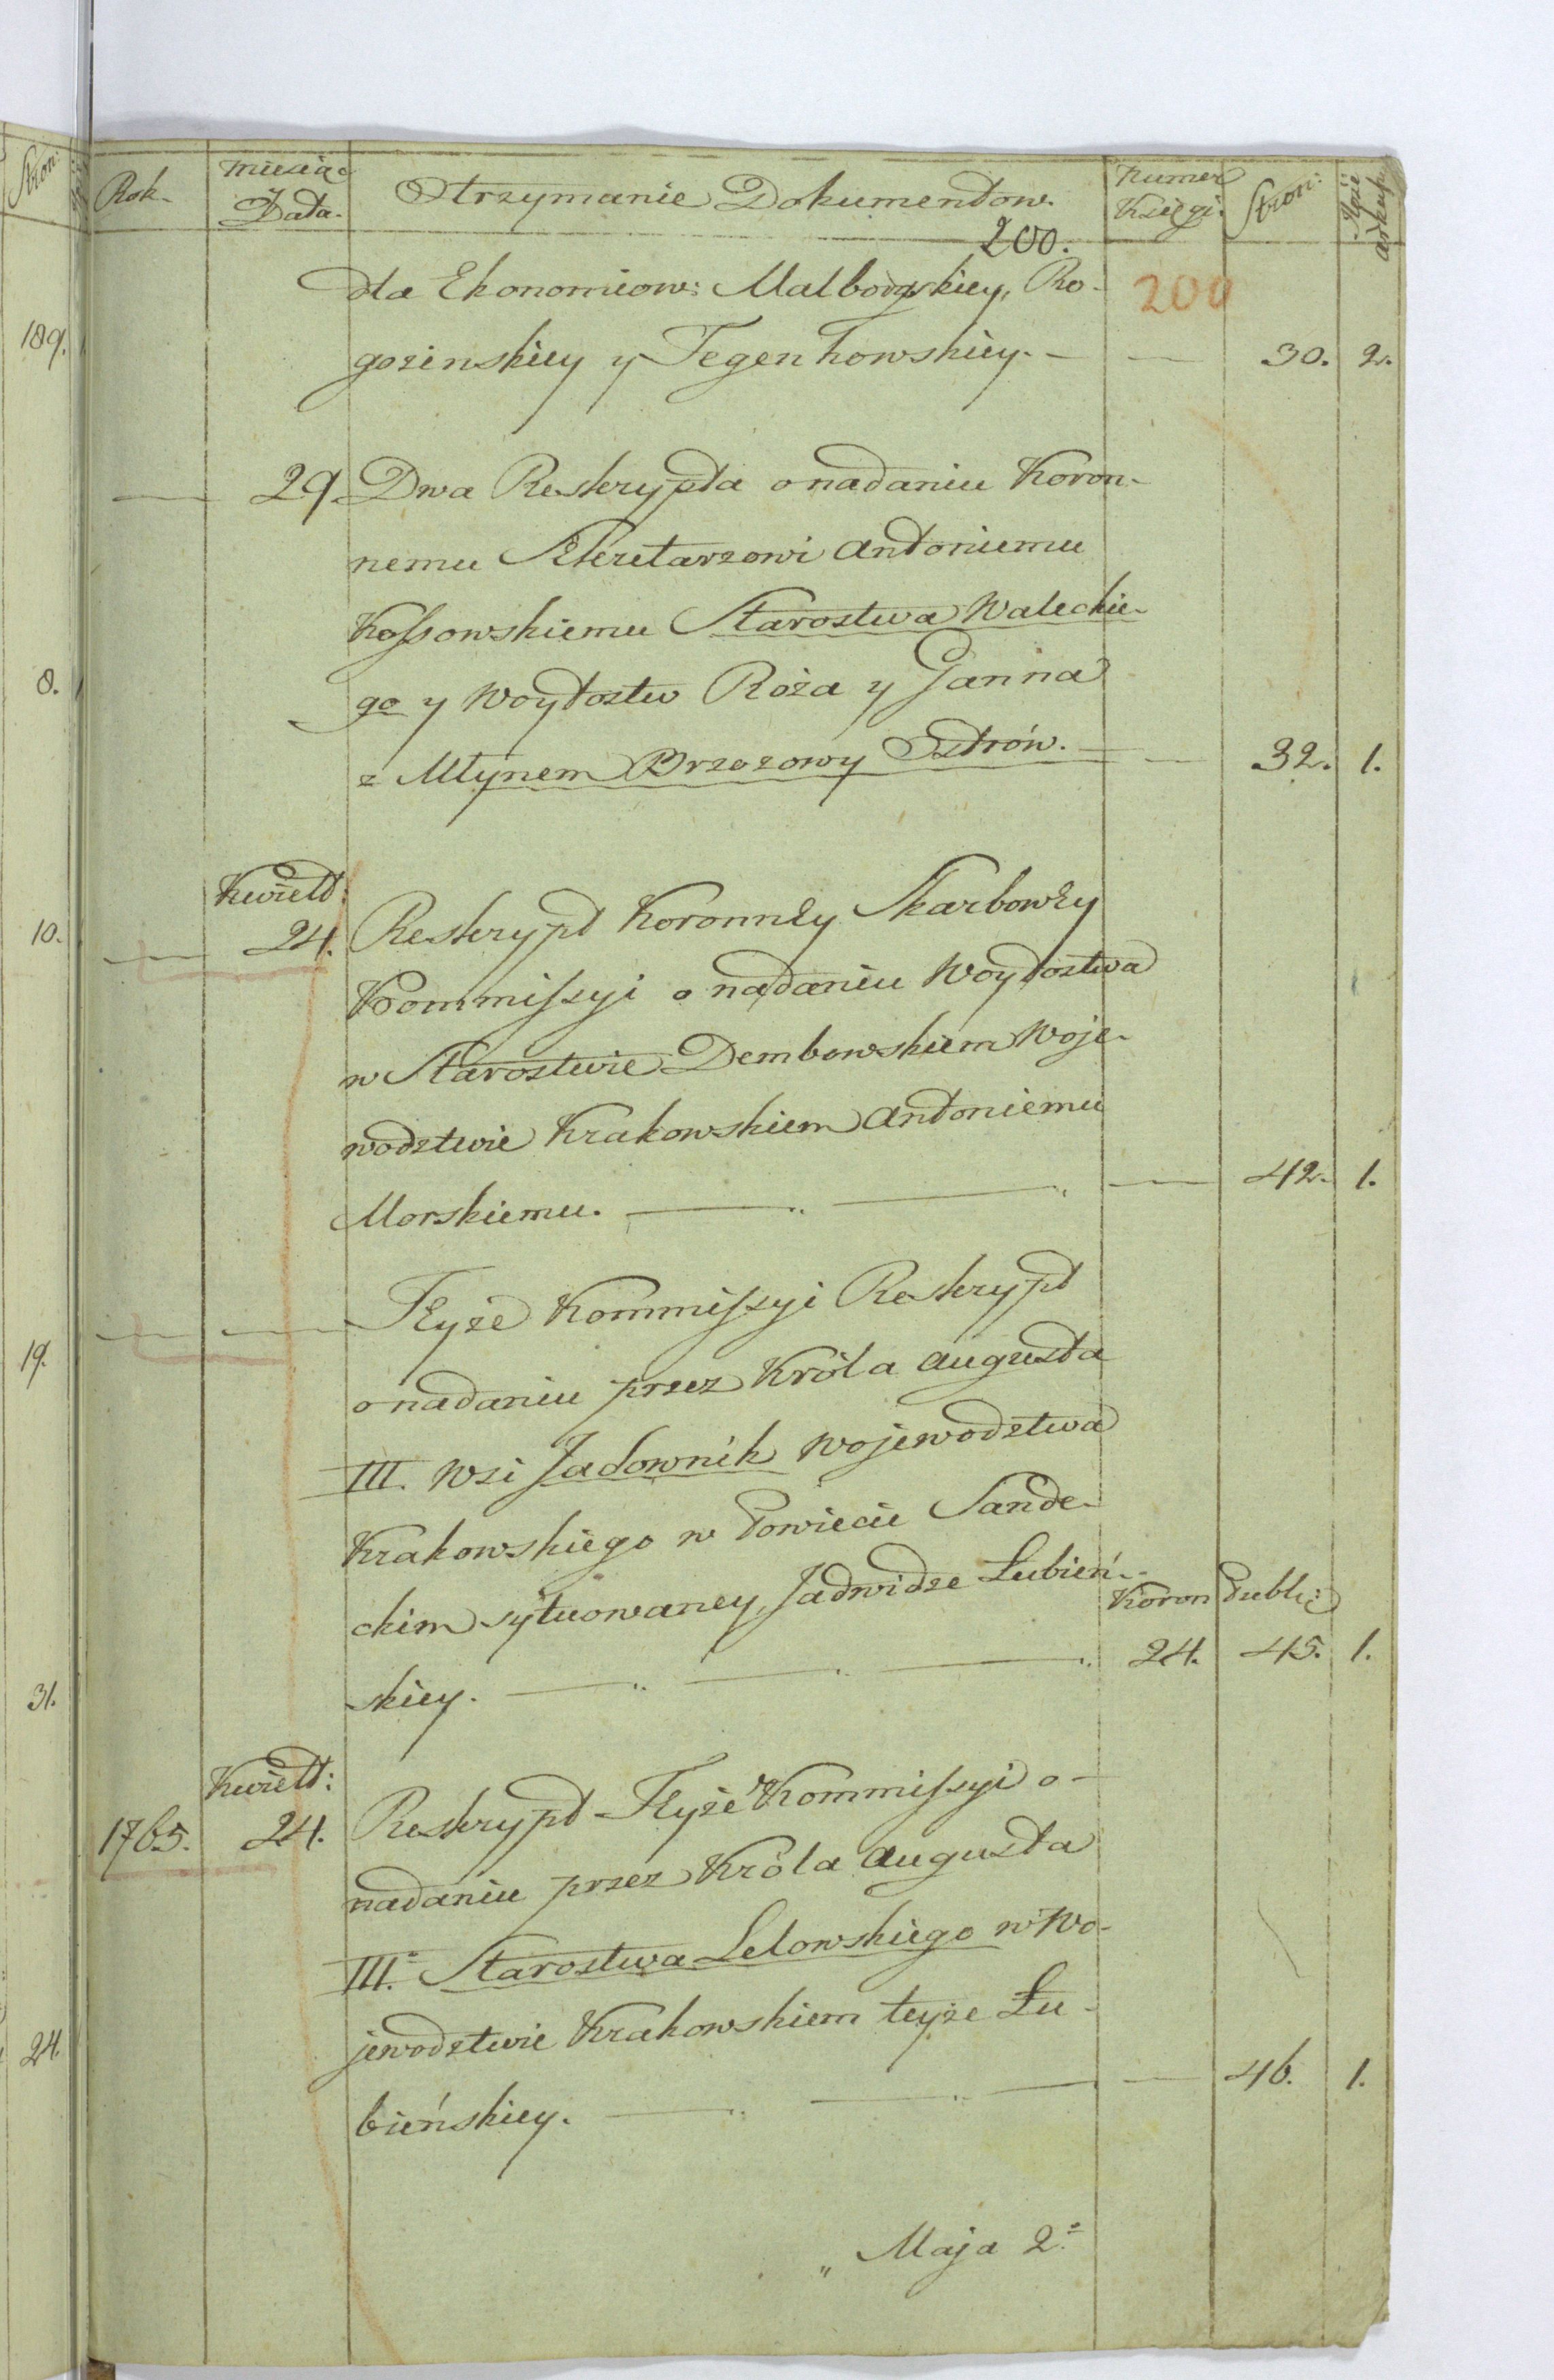 Stron:
Rok.
miesiąc
Data.
Otrzymanie Dokumentow.
Numer
Księgi.
Stron:
Ilość
arkuszy
200.
200
dla Ekonomiow: Malborgskiey, Ro-
189.
gozinskiey y Tegenhowskiey. — 30. 2.
— 29. Dwa Reskrypta o nadaniu Koron-
nemu Sekretarzowi Antoniemu
Kossowskiemu Starostwa Waleckie-
8.
go y Woytostw Róża y Janna
z Młynem Brzozowy Ostrów. — 32. 1.
Kwiett:
10.
— 24. Reskrypt Koronnéy Skarbowéy
Kommissyi o nadaniu Woytostwa
w Starostwie Dembowskiem Woje-
wodztwie Krakowskiem Antoniemu
Morskiemu. — 42. 1.
19.
— — Téyże Kommissyi Reskrypt
o nadaniu przez Króla Augusta
III. Wsi Jadownik Wojewodztwa
Krakowskiego w Powiecie Sande-
ckim sytuowaney, Jadwidze Łubień-
Koron Publ:
31.
skiey. — 24. 45. 1.
Kwiett:
1765. 24. Reskrypt Téyże Kommissyi o-
nadaniu przez Króla Augusta
III. Starostwa Lelowskiego w Wo-
24.
jewodztwie Krakowskiem teyże Łu-
bieńskiey. — 46. 1.
„ Maja 2.